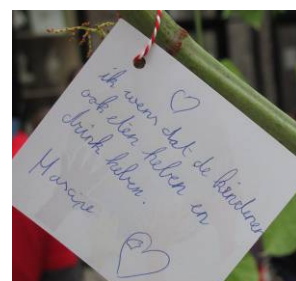 ik wens dat de kinderen
ook eten heben en
drink heben.